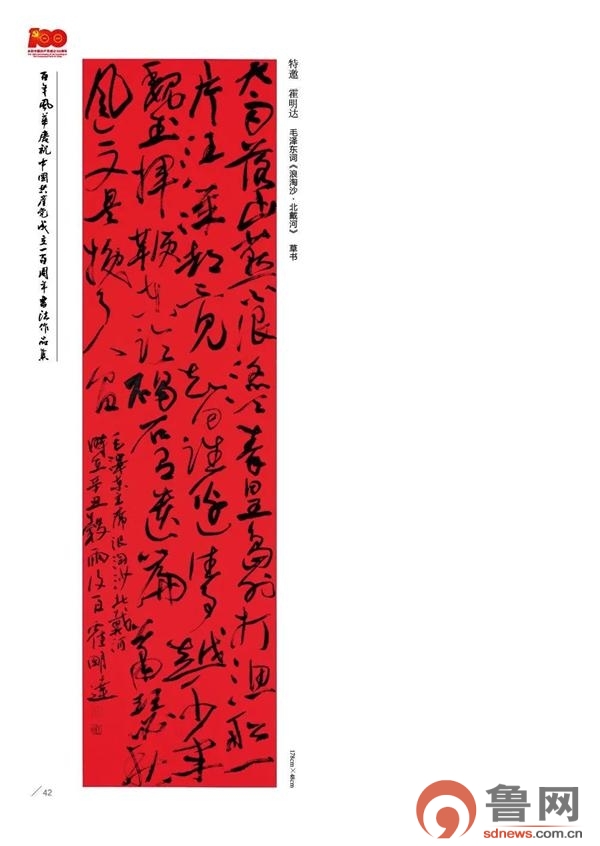 100
庆祝中国共产党成立100周年
百年风华庆祝中国共产党成立一百周年书法作品集
特邀 霍明达 毛泽东词《浪淘沙·北戴河》 草书
大雨落幽燕白浪滔天秦皇岛外打渔船一
片汪洋都不见知向谁边往事越千年
魏武挥鞭东临碣石有遗篇萧瑟秋
风今又是换了人间
毛澤东主席浪淘沙北戴河
時在辛丑穀雨后 霍明達
178cm×48cm
42
鲁网
sdnews.com.cn